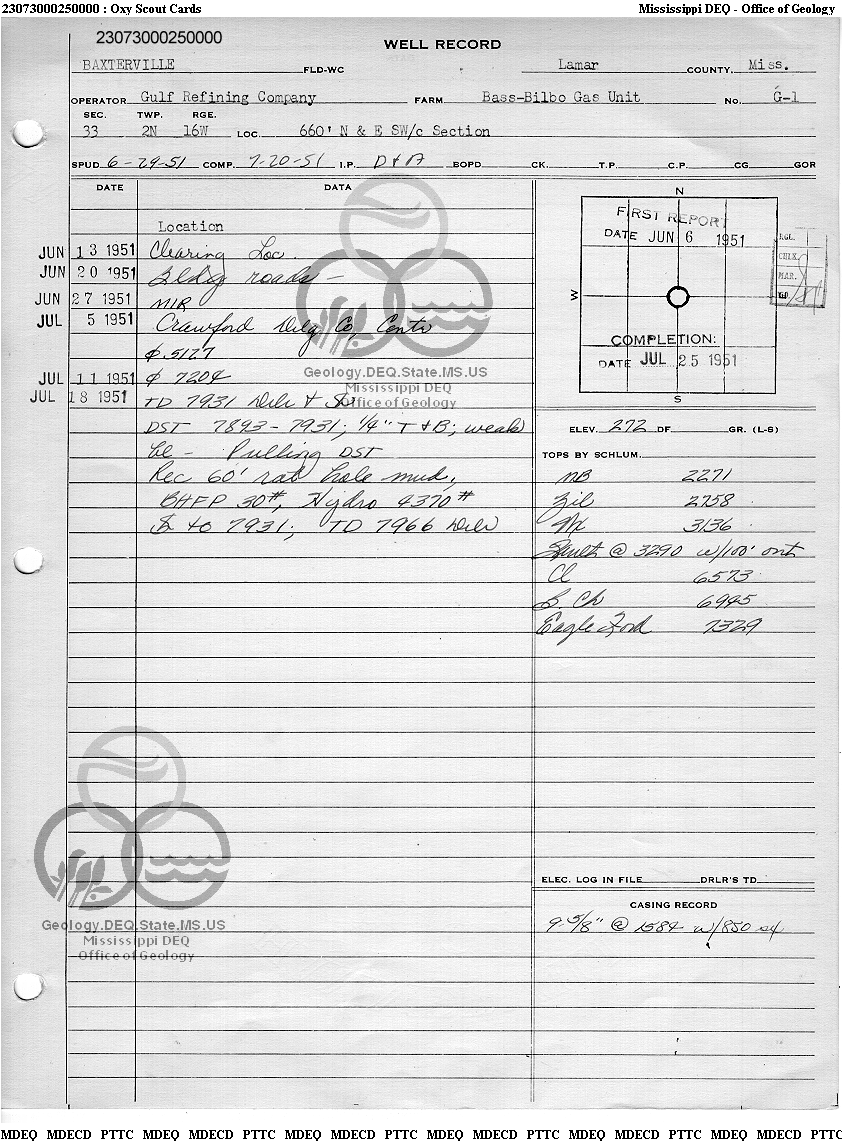 23073000250000 : Oxy Scout Cards Mississippi DEQ - Office of Geology
23073000250000
WELL RECORD
BAXTERVILLE FLD-WC Lamar COUNTY, Miss.
OPERATOR Gulf Refining Company FARM Bass-Bilbo Gas Unit No. G-1
SEC. TWP. RGE.
33 2N 16W LOC. 660' N & E SW/c Section
SPUD 6-29-51 COMP. 7-20-51 I.P. D & A BOPD CK. T.P. C.P. CG GOR
DATE DATA
Location
JUN 13 1951 Clearing Loc.
JUN 20 1951 Bldg roads -
JUN 27 1951 MIR
JUL 5 1951 Crawford Drlg Co, Contr
@ 5127
JUL 11 1951 @ 7204
JUL 18 1951 TD 7931 Drlr &
DST 7893-7931; 1/4" T & B; weak
bl - Pulling DST
Rec 60' rat hole mud,
BHFP 30#, Hydro 4370#
to 7931; TD 7966 Drlr
N
FIRST REPORT
DATE JUN 6 1951
RGL.
CHLK.
MAR.
W
COMPLETION:
DATE JUL 25 1951
S
ELEV. 272 DF GR. (L-S)
TOPS BY SCHLUM.
MB 2271
Zil 2758
Mx 3136
Fault @ 3290 w/100' out
Cl 6573
L. Ch 6945
Eagle Ford 7329
ELEC. LOG IN FILE DRLR'S TD
CASING RECORD
9-5/8" @ 1584 w/850 sx
Geology.DEQ.State.MS.US
Mississippi DEQ
Office of Geology
Geology.DEQ.State.MS.US
Mississippi DEQ
Office of Geology
MDEQ MDECD PTTC MDEQ MDECD PTTC MDEQ MDECD PTTC MDEQ MDECD PTTC MDEQ MDECD PTTC MDEQ MDECD PTTC